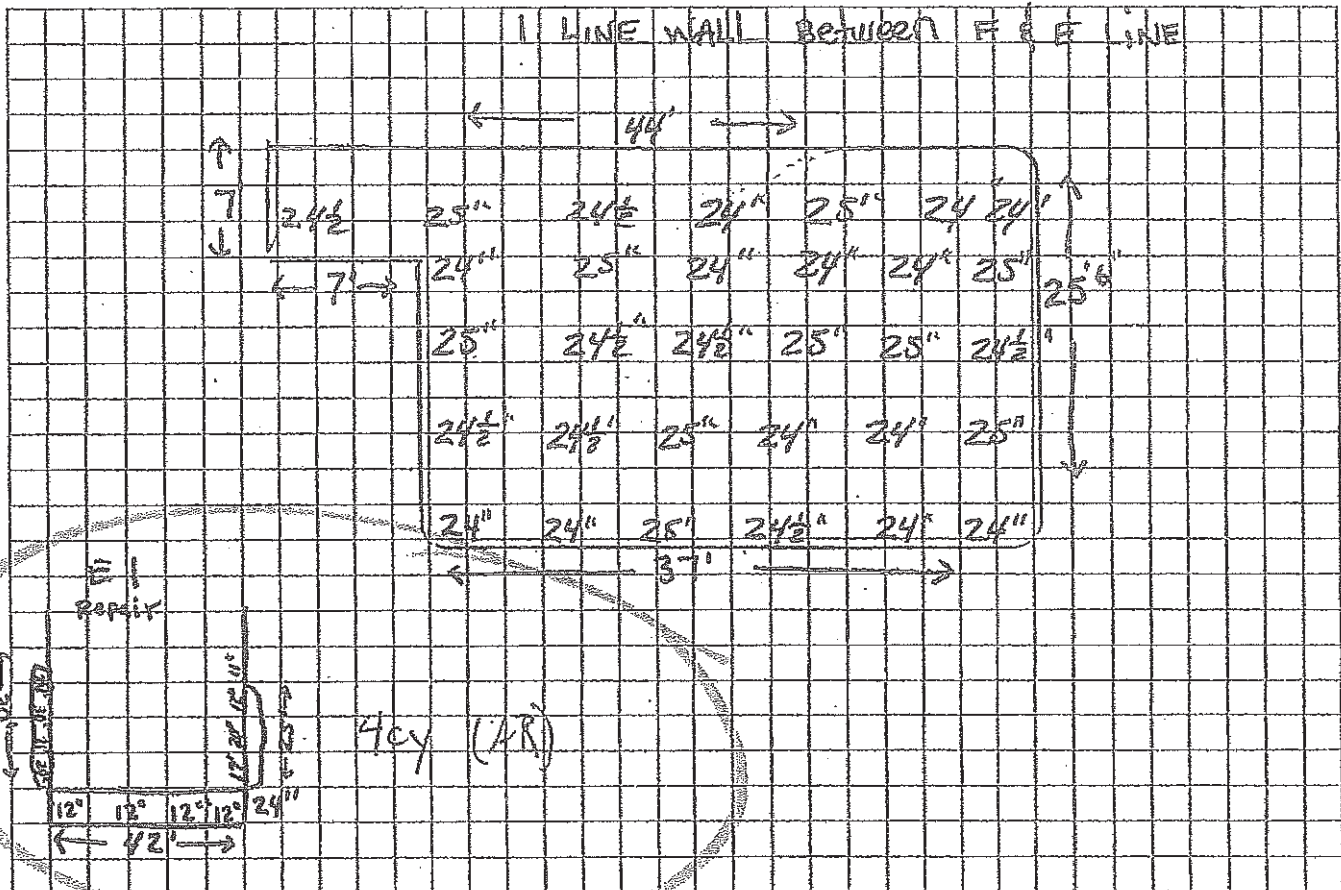 1 LINE WALL Between F & E LINE
44'
7
24½ 25" 24½ 24" 25" 24 24"
24" 25" 24" 24" 24" 25"
7'
25'6"
25" 24½" 24½" 25" 25" 24½"
24½" 24½" 25" 24" 24" 25"
24" 24" 25" 24½" 24" 24"
37'
E1
Repair
12" 20" 12" 11"
25"
4cy (AR)
12" 12" 12" 12" 24"
42"